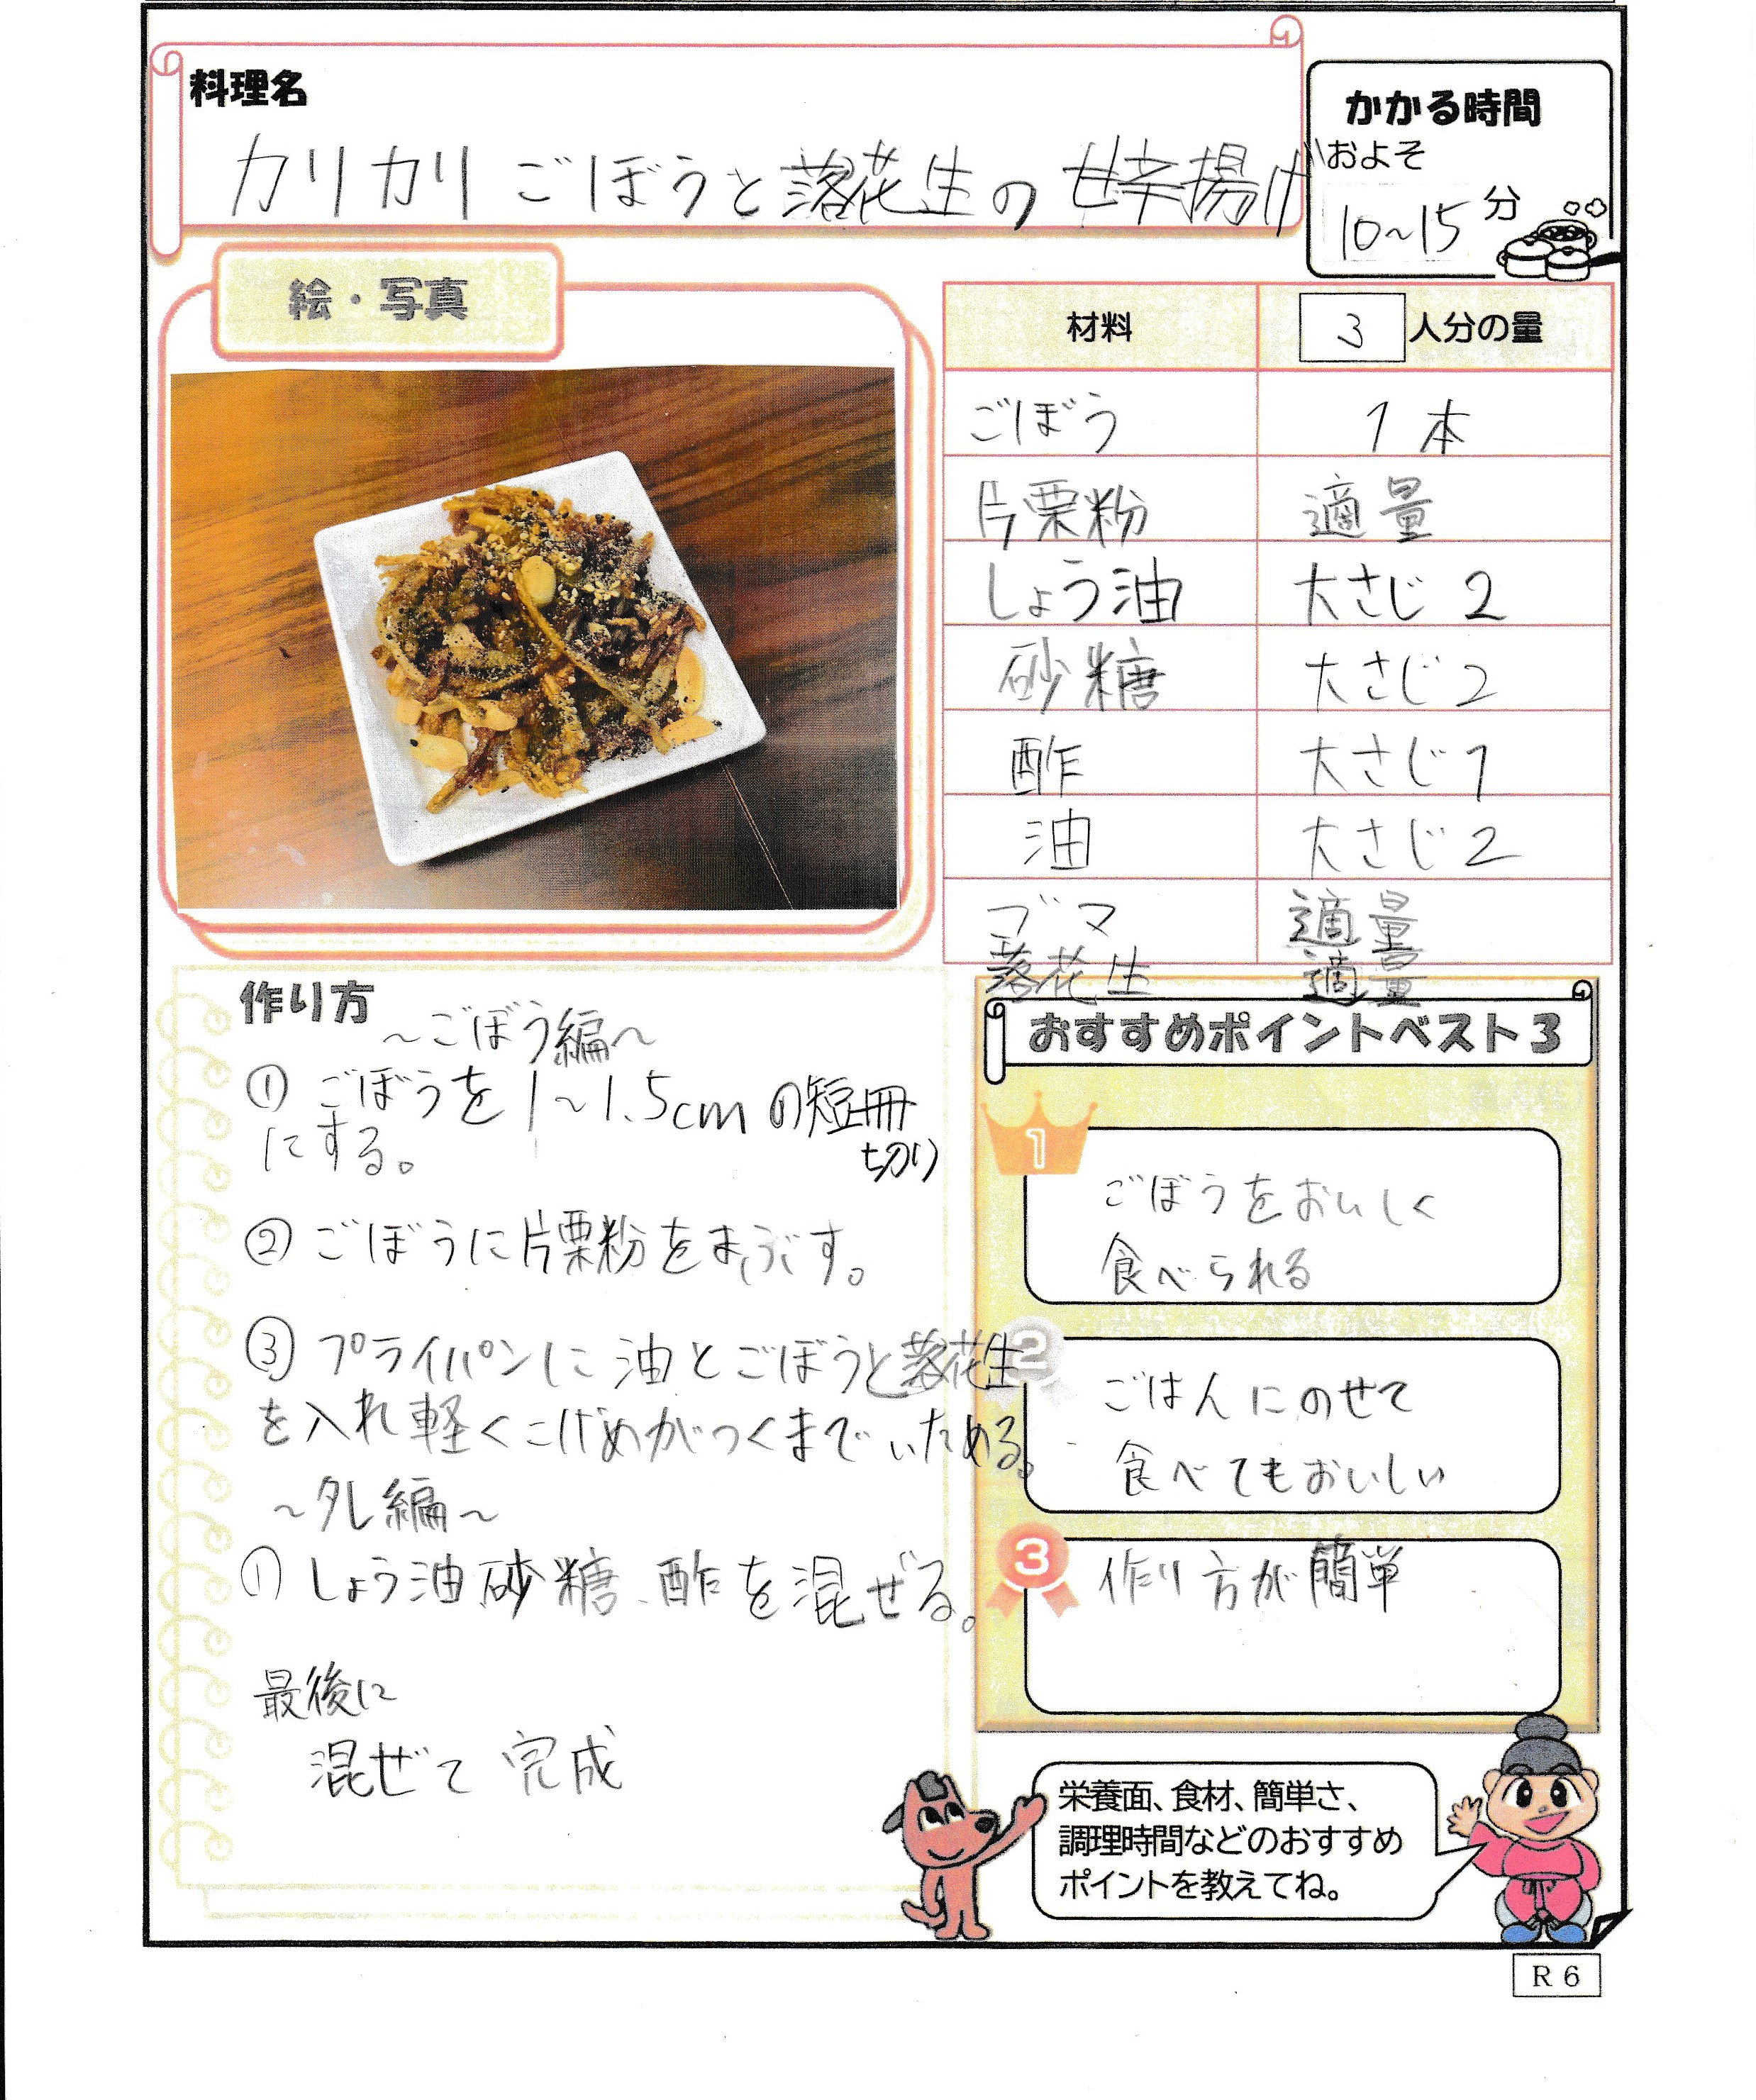 料理名
カリカリごぼうと落花生の甘辛揚げ
かかる時間
およそ
10~15 分
絵・写真
材料 3 人分の量
ごぼう 1本
片栗粉 適量
しょう油 大さじ 2
砂糖 大さじ2
酢 大さじ1
油 大さじ2
ゴマ 適量
落花生 適量
作り方
~ごぼう編~
① ごぼうを1~1.5cmの短冊
切り
にする。
② ごぼうに片栗粉をまぶす。
③ プライパンに油とごぼうと落花生
を入れ軽くこげめがつくまでいためる。
~タレ編~
① しょう油、砂糖、酢を混ぜる。
最後に
混ぜて 完成
おすすめポイントベスト3
1
ごぼうをおいしく
食べられる
2
ごはんにのせて
食べてもおいしい
3
作り方が簡単
栄養面、食材、簡単さ、
調理時間などのおすすめ
ポイントを教えてね。
R6